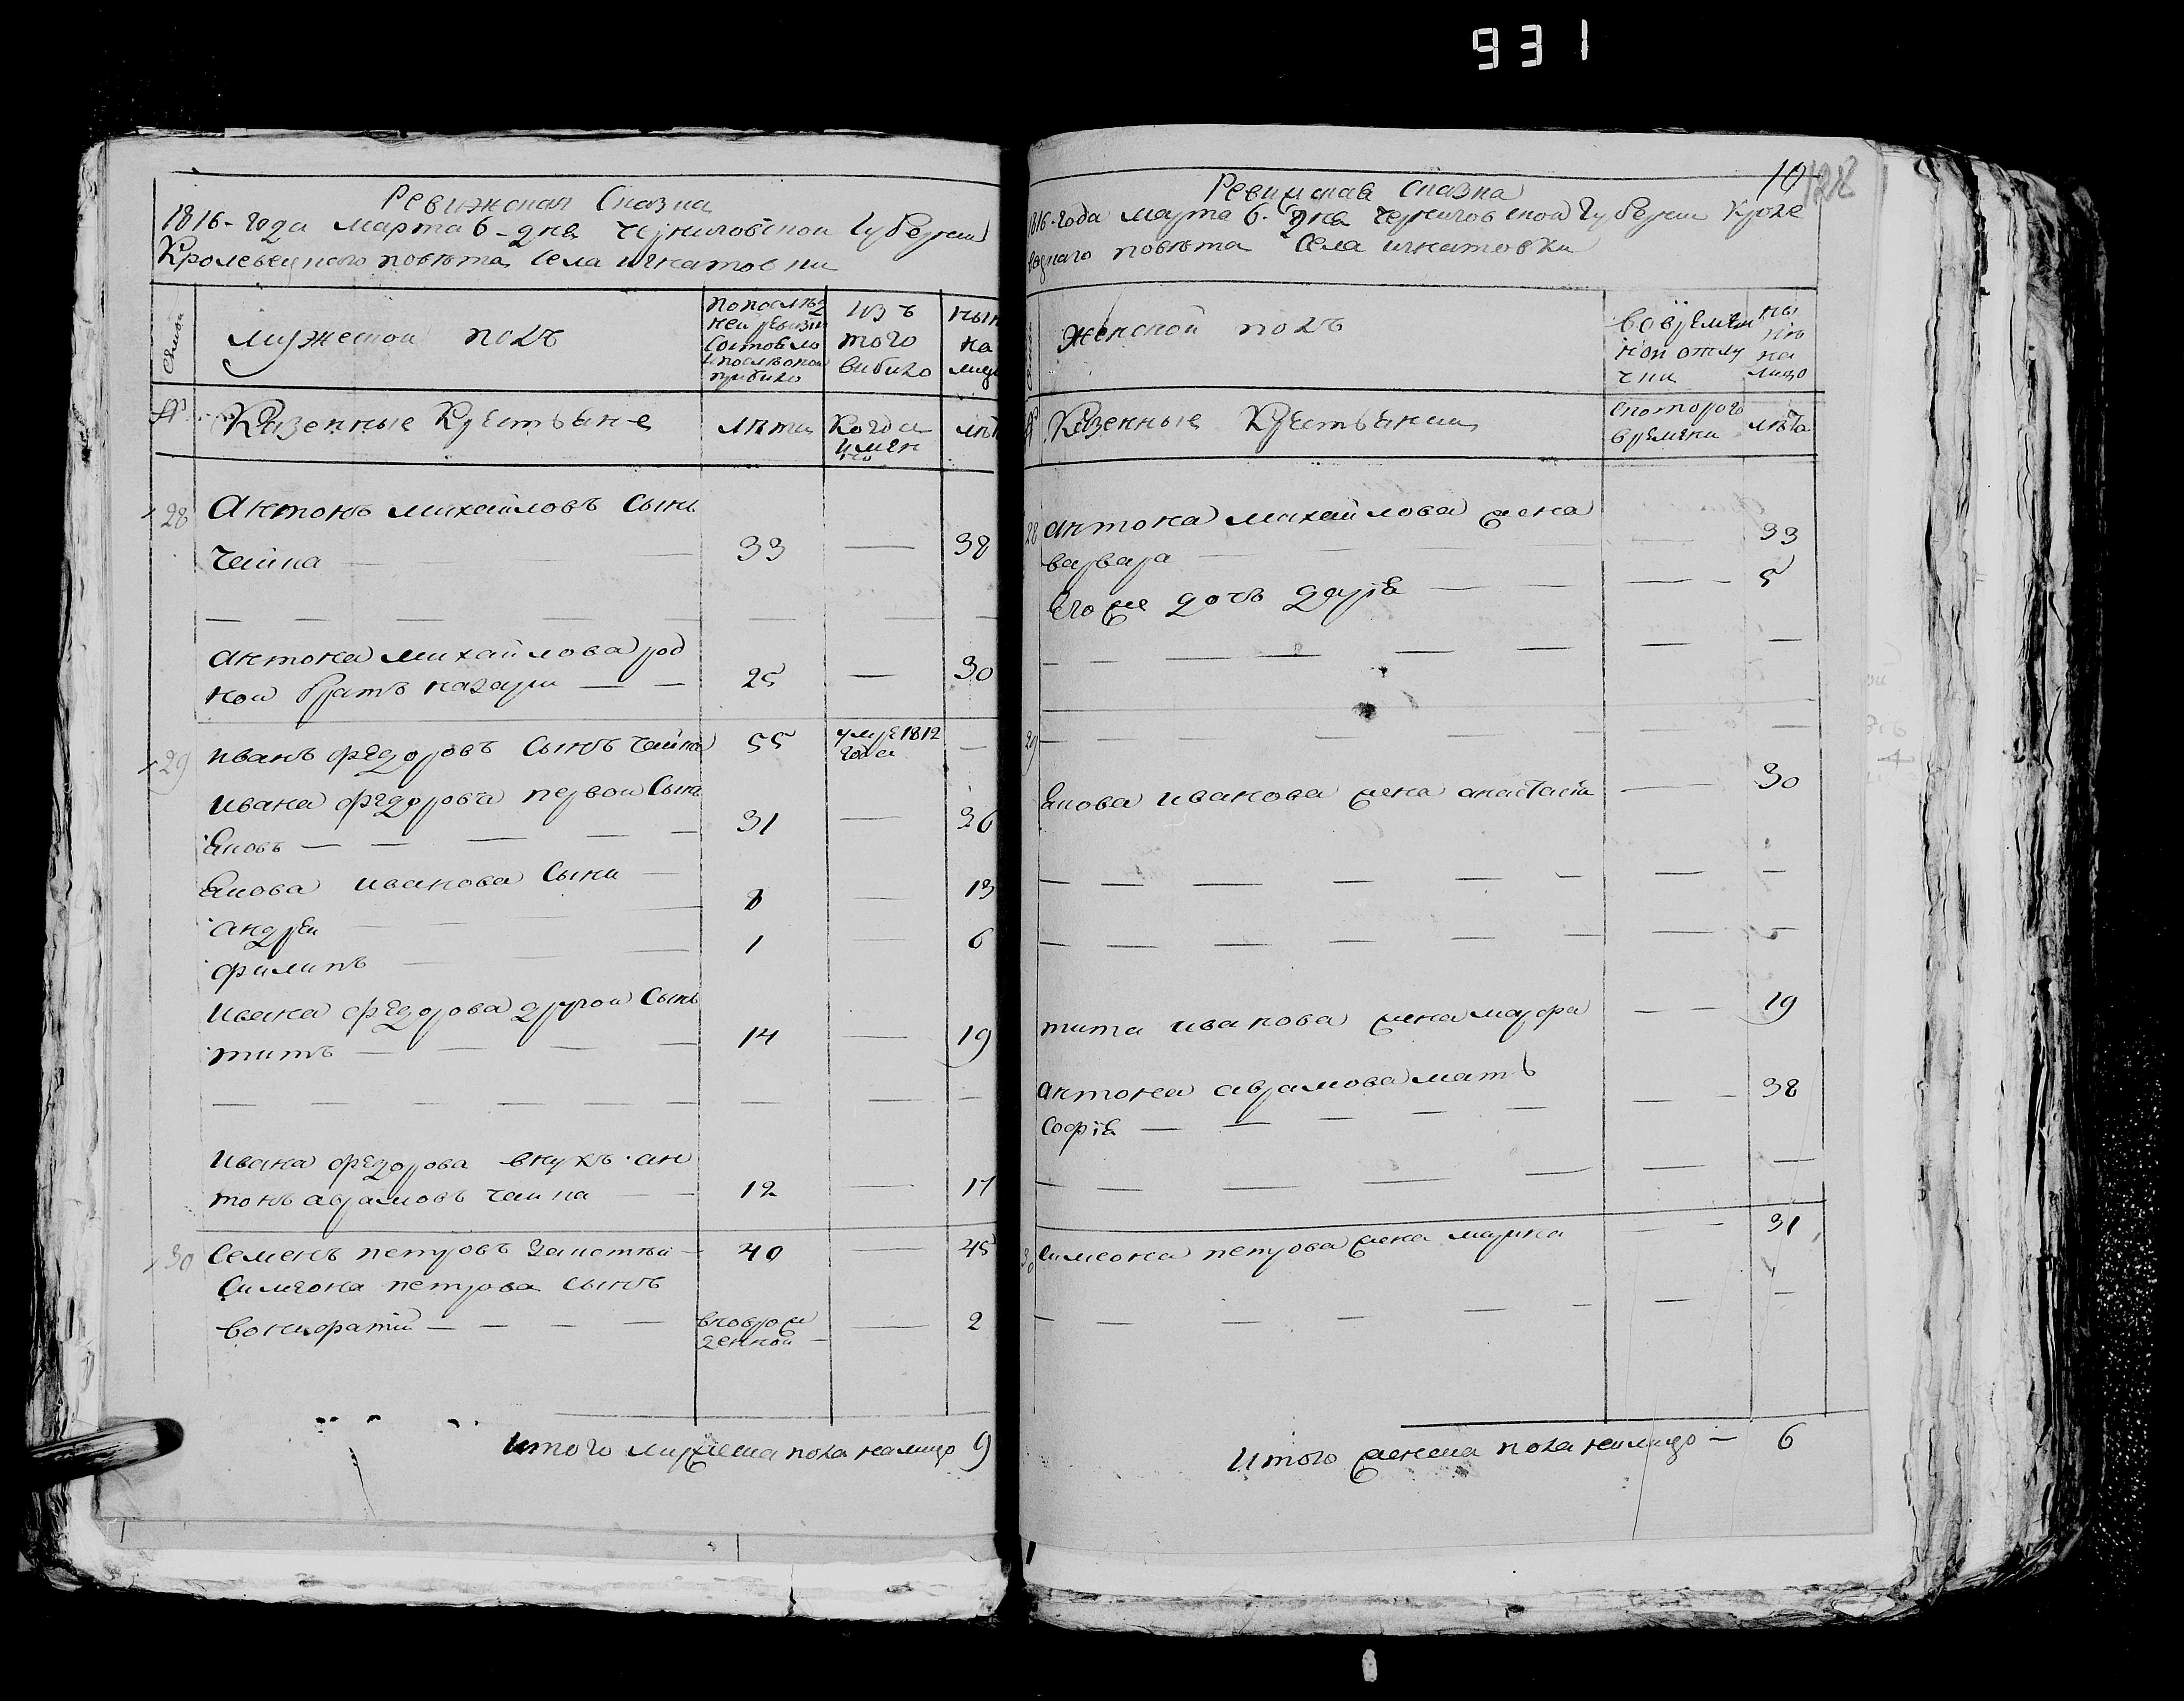 931
Ревижская Сказка
1816-года марта 6-дня Черниговской Губернии
Кролевецкого повѣта, Села игнатовки
Семьи
мужеской полъ
по послѣд
ней ревизи
состояло
и послѣ оной
прибыло
изъ
того
выбыло
нын
на
лицо
№
Казенные Крестьяне
лѣта
Когда
имян
но
лѣт
28
Антонъ михайловъ Сынъ
Чайка
33
38
Антона михайлова род
ной братъ назари
25
30
29
иванъ федоровъ Сынъ Чайка
55
умре 1812
года
ивана федорова первой Сынъ
Яковъ
31
36
Якова иванова Сыни
андреи
8
13
филипъ
1
6
ивана федорова другой Сынъ
титъ
14
19
ивана федорова внукъ ан
тонъ аврамовъ чайка
12
17
30
Семенъ петровъ
40
45
Симеона петрова Сынъ
Вонифатій
новорож
денной
2
итого мужеска пола налицо 9
10
128
Ревижская Сказка
1816-года марта 6-дня Черниговской Губернии Кроле
вецкаго повѣта Села игнатовки
женской полъ
во времен
ной отлу
чки
ны
нѣ
на
лицо
№
Казенные Крестьянки
с котораго
времени
лѣта
28
Антона михайлова жена
варвара
33
Его же дочь дария
5
29
Якова иванова жена анастасія
30
тита иванова жена марфа
19
антона аврамова мать
Софія
38
30
Симеона петрова жена марина
31
Итого женска пола налицо — 6